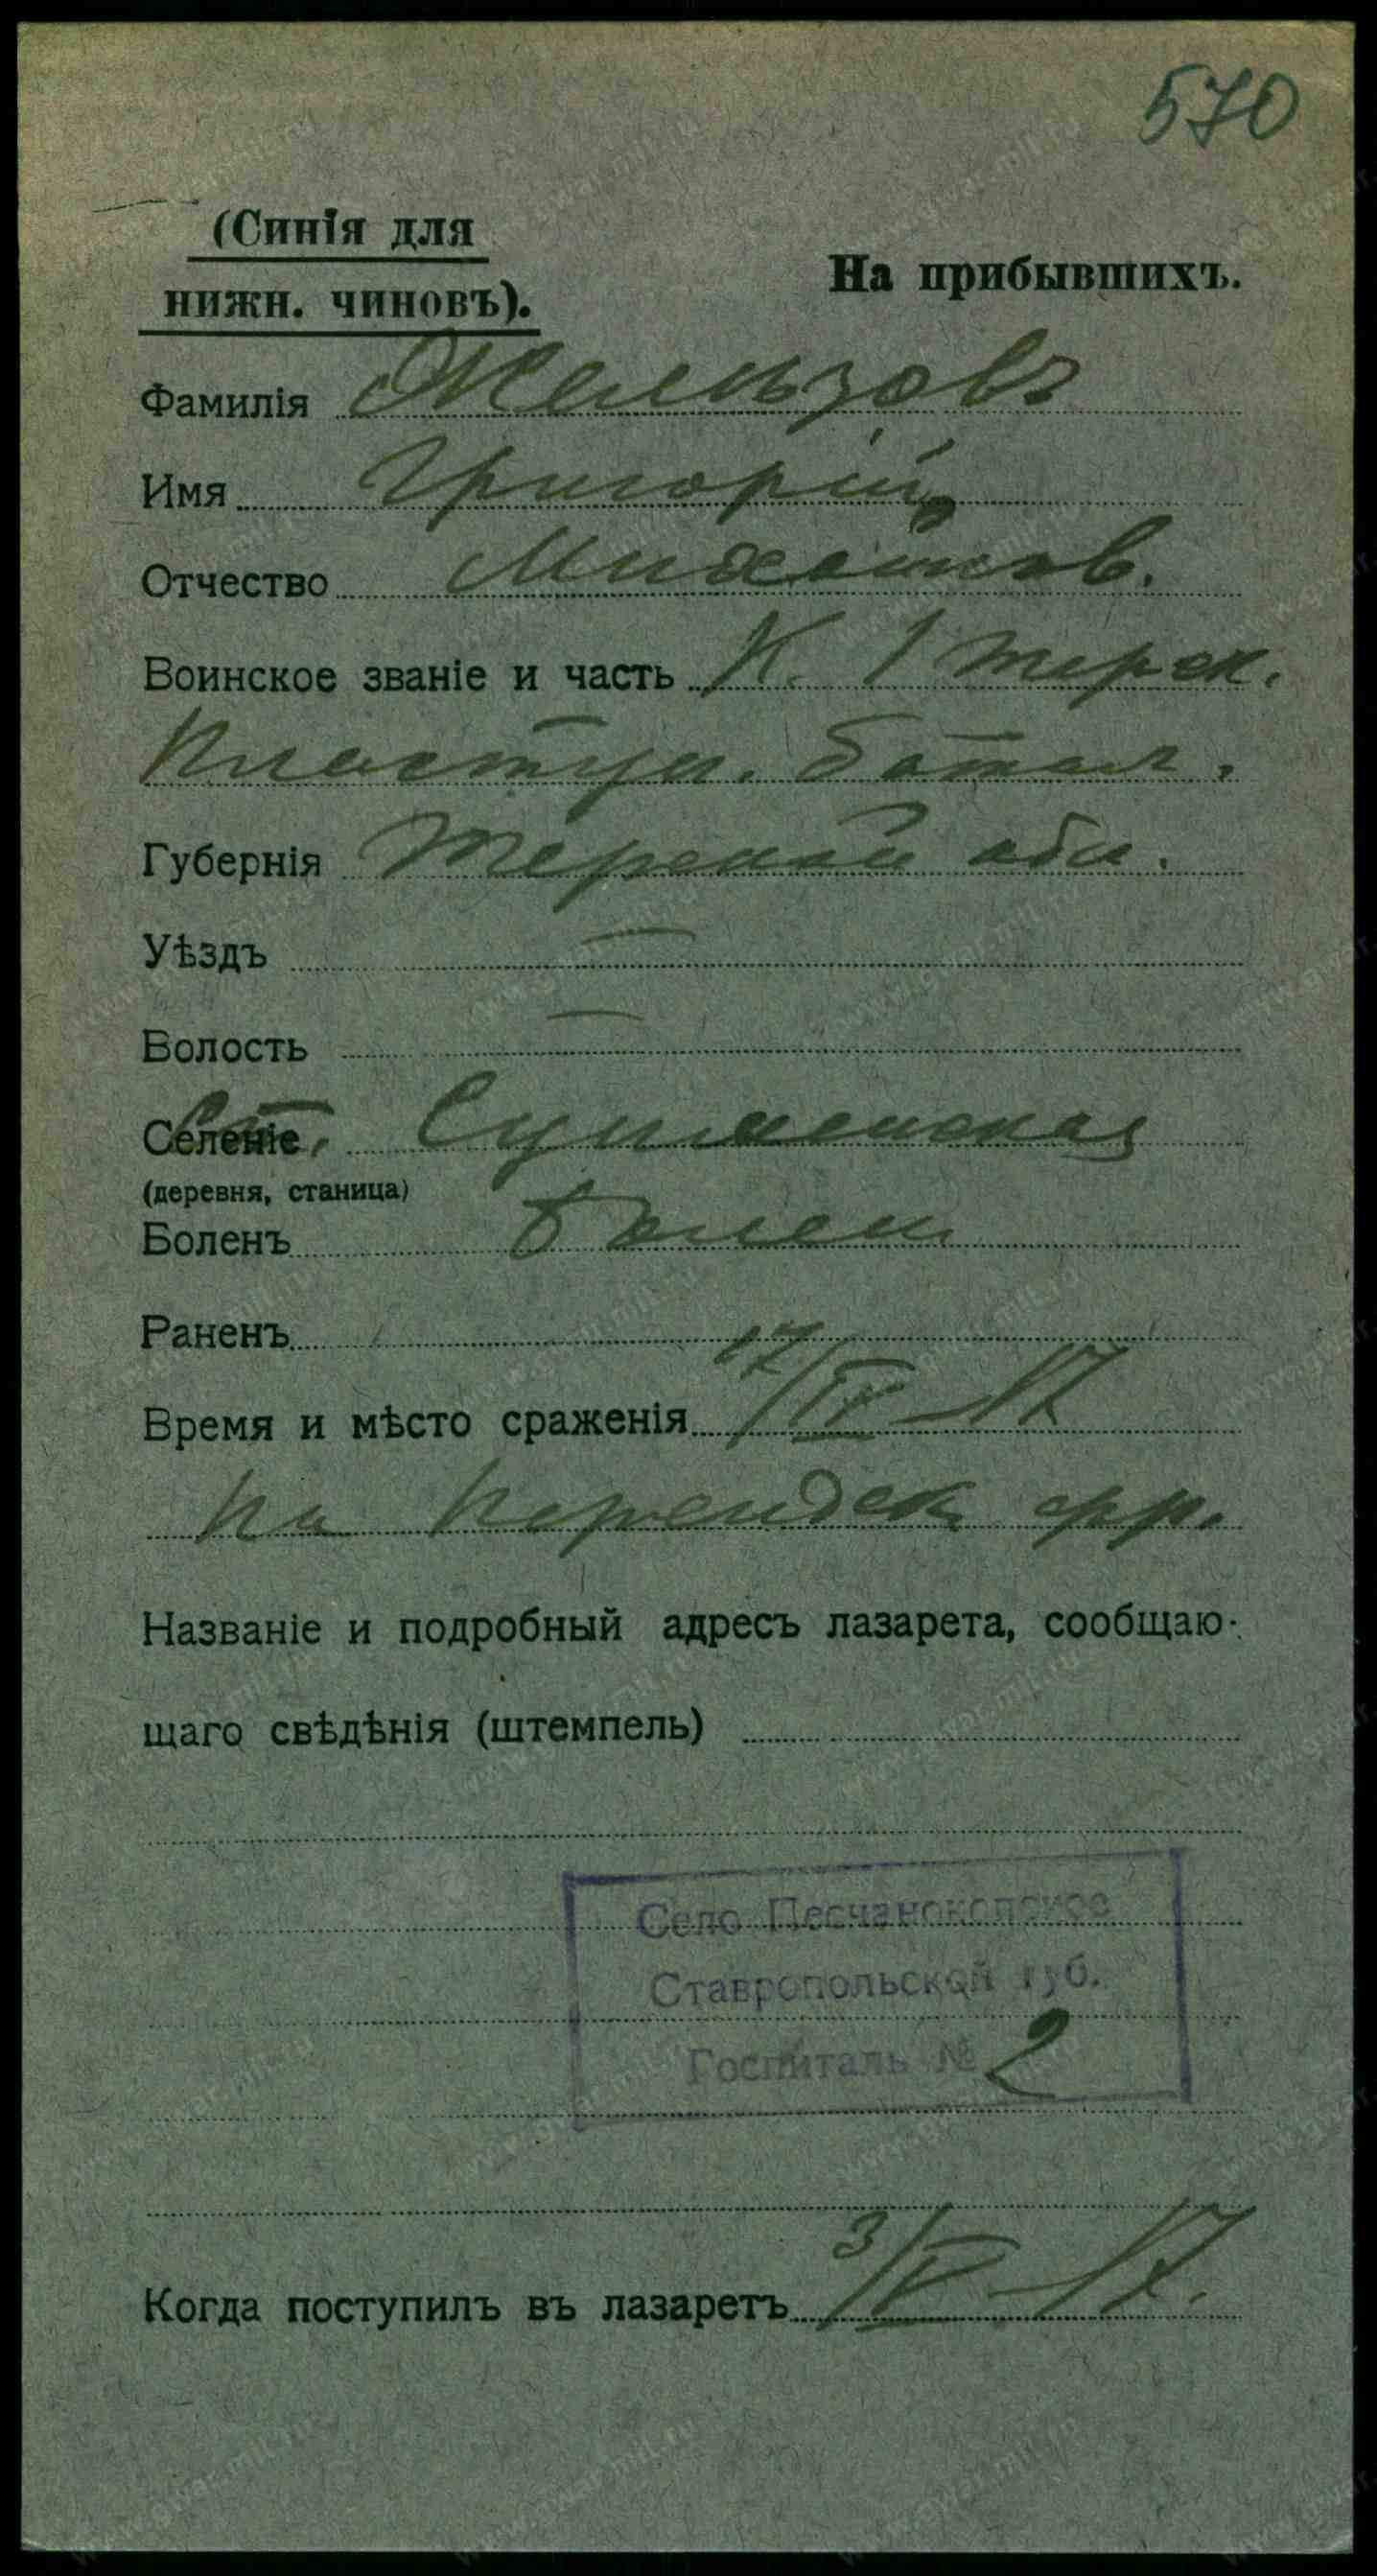 570
(Синія для
нижн. чиновъ).
На прибывшихъ.
Фамилія
Имя Григорій
Отчество Михайлов.
Воинское званіе и часть К. 1 Терск.
Пластун. батал.
Губернія Терской обл.
Уѣздъ —
Волость —
Селеніе Ст.
(деревня, станица)
Боленъ болен
Раненъ
Время и мѣсто сраженія 17/IV – 17
на Персидск фр.
Названіе и подробный адресъ лазарета, сообщаю-
щаго свѣдѣнія (штемпель)
Село Песчанокопское
Ставропольской губ.
Госпиталь № 2
Когда поступилъ въ лазаретъ 3/V – 17.